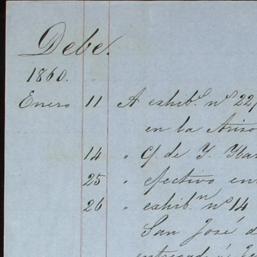 Debe.
1860.
Enero 11 A exhib.n nº 22,
en la
14 " G. de Y.
25 " efectivo en
26 " exhib.n nº 14
San José d
entregad á